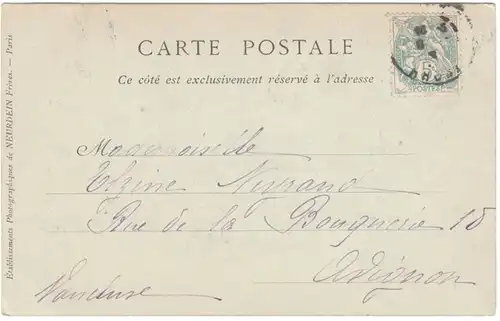 CARTE POSTALE
Ce côté est exclusivement réservé à l'adresse
POSTES
Mademoiselle
Rue de la Bouquerie 18
Avignon
Vaucluse
Établissements Photographiques de NEURDEIN Frères. — Paris